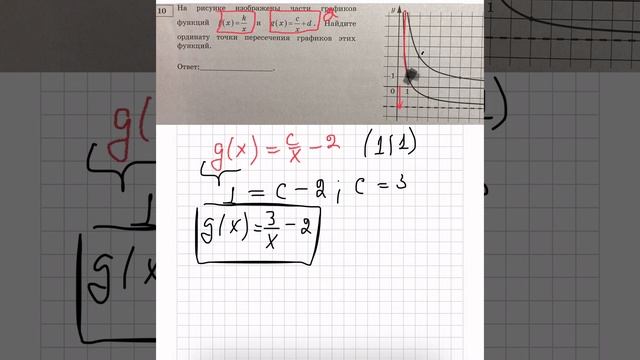 10 На рисунке изображены части графиков
функций f(x)=k/x и g(x)=c/x+d. Найдите
ординату точки пересечения графиков этих
функций.
Ответ:
y
1
0 1
g(x) = c/x - 2 (1;1)
1 = c - 2 ; c = 3
g(x) = 3/x - 2